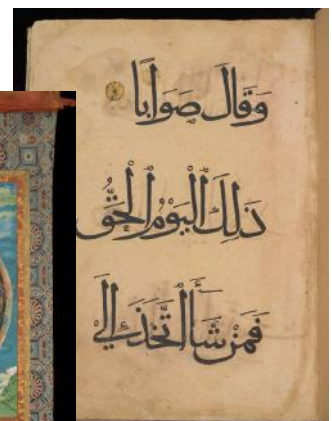 وَقَالَ صَوَابًا
ذَلِكَ الْيَوْمُ الْحَقُّ
فَمَنْ شَأَ اتَّخَذَ إِلَى